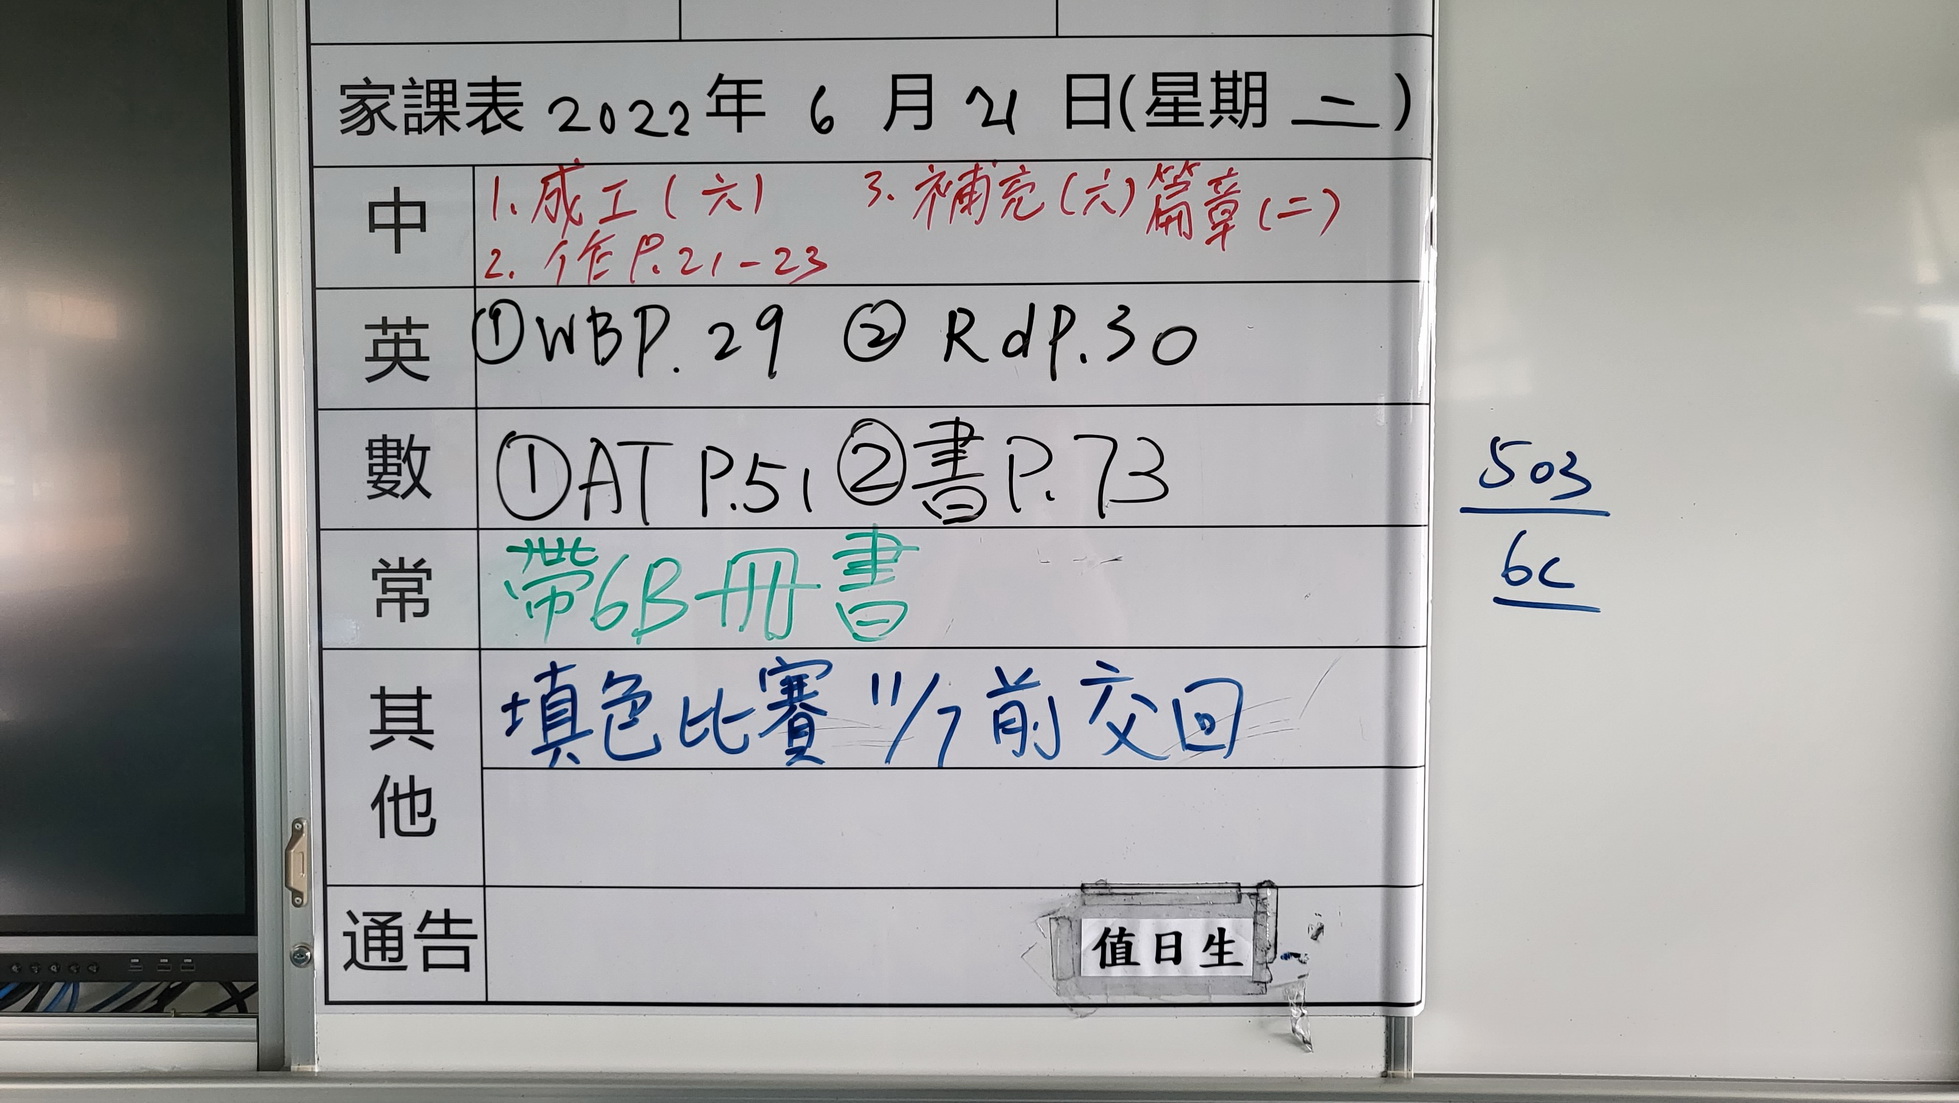 家課表 2022年 6 月 21 日(星期 二 )
中
1. 成工(六) 3. 補充(六)篇章(二)
2. 作P.21-23
英
①WBP.29 ② RdP.30
數
①AT P.51 ②書P.73
常
帶6B冊書
其他
填色比賽 11/7 前交回
通告
值日生
503
6C